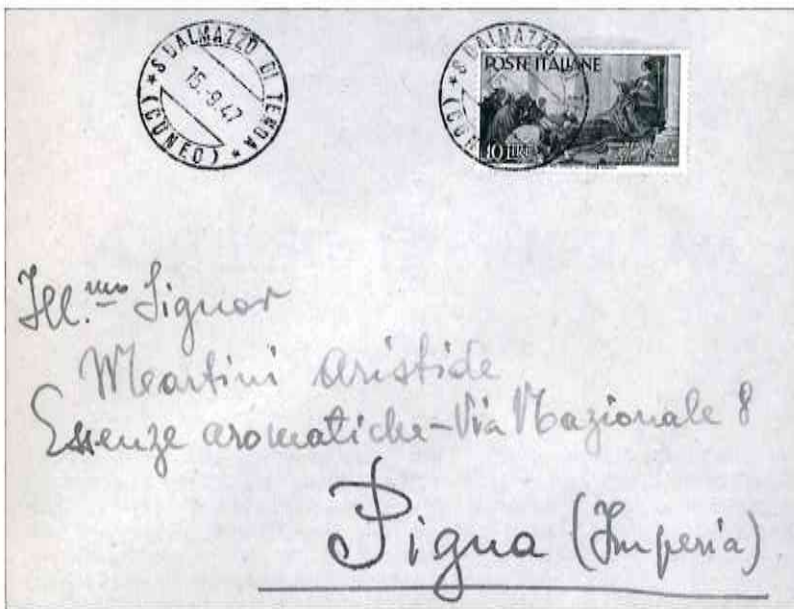 * S. DALMAZZO DI TENDA *
15.-9.47
(CUNEO)
* S. DALMAZZO
(CUN
POSTE ITALIANE
10 LIRE
Ill.mo Signor
Martini Aristide
Essenze aromatiche - Via Nazionale 8
Pigna (Imperia)